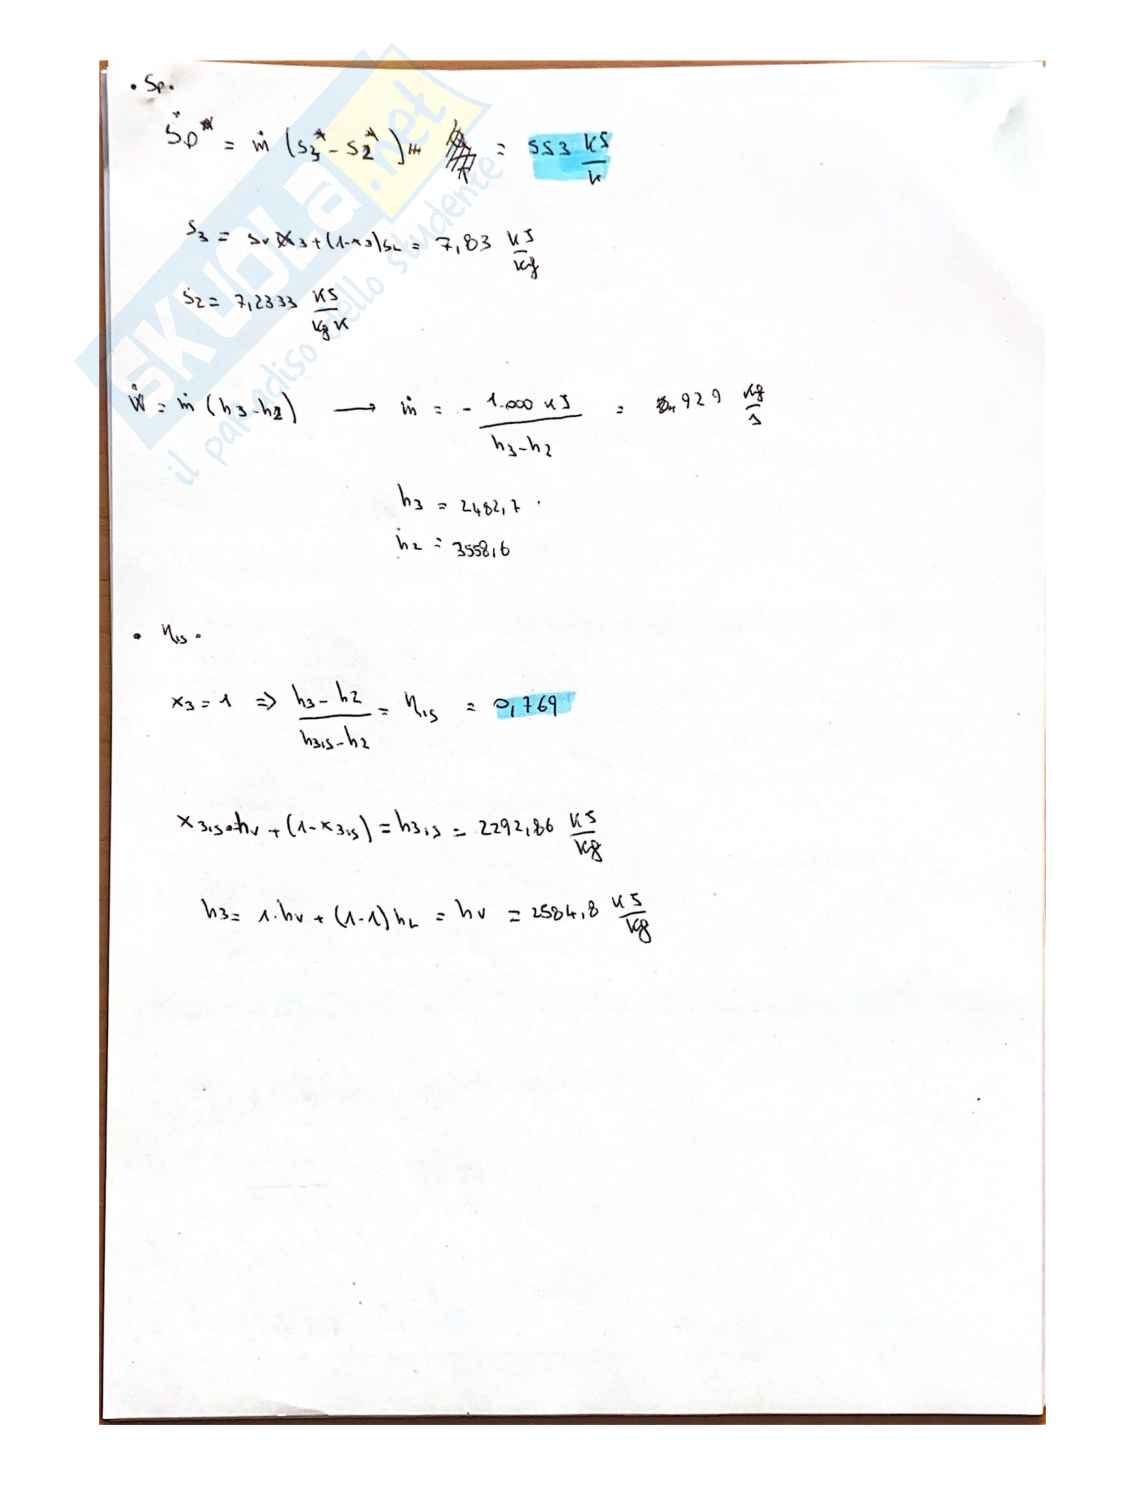 • Sp.
Ṡp* = ṁ (s3* - s2*) = 553 kJ/K
s3 = sv x3 + (1-x3)sL = 7,83 kJ/kg
s2 = 7,2333 kJ/kg K
Ẇ = ṁ (h3-h2) → ṁ = - 1.000 kJ / h3-h2 = 0,929 kg/s
h3 = 2482,7
h2 = 3558,6
• ηis.
x3 = 1 ⇒ h3-h2 / h3is-h2 = ηis = 0,769
x3is·hv + (1-x3is) = h3is = 2292,86 kJ/kg
h3 = 1·hv + (1-1)hL = hv = 2584,8 kJ/kg
SKUOLA.net
il paradiso dello studente